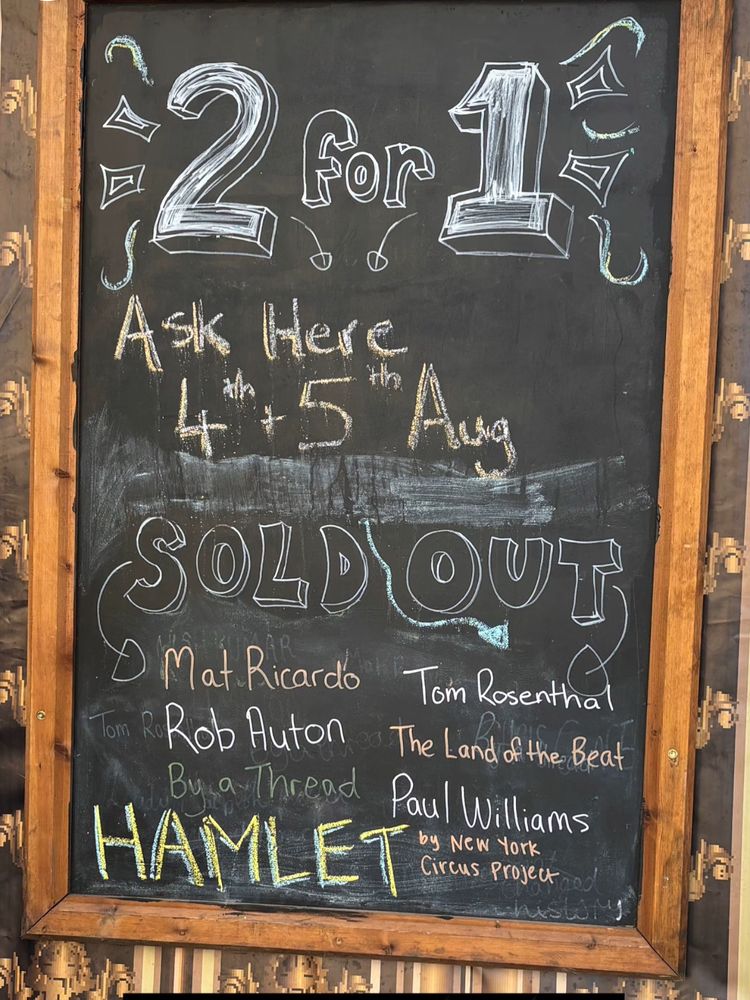 2 for 1
Ask Here
4th + 5th Aug
SOLD OUT
Mat Ricardo
Rob Auton
By a Thread
HAMLET
by New York
Circus Project
Tom Rosenthal
The Land of the Beat
Paul Williams